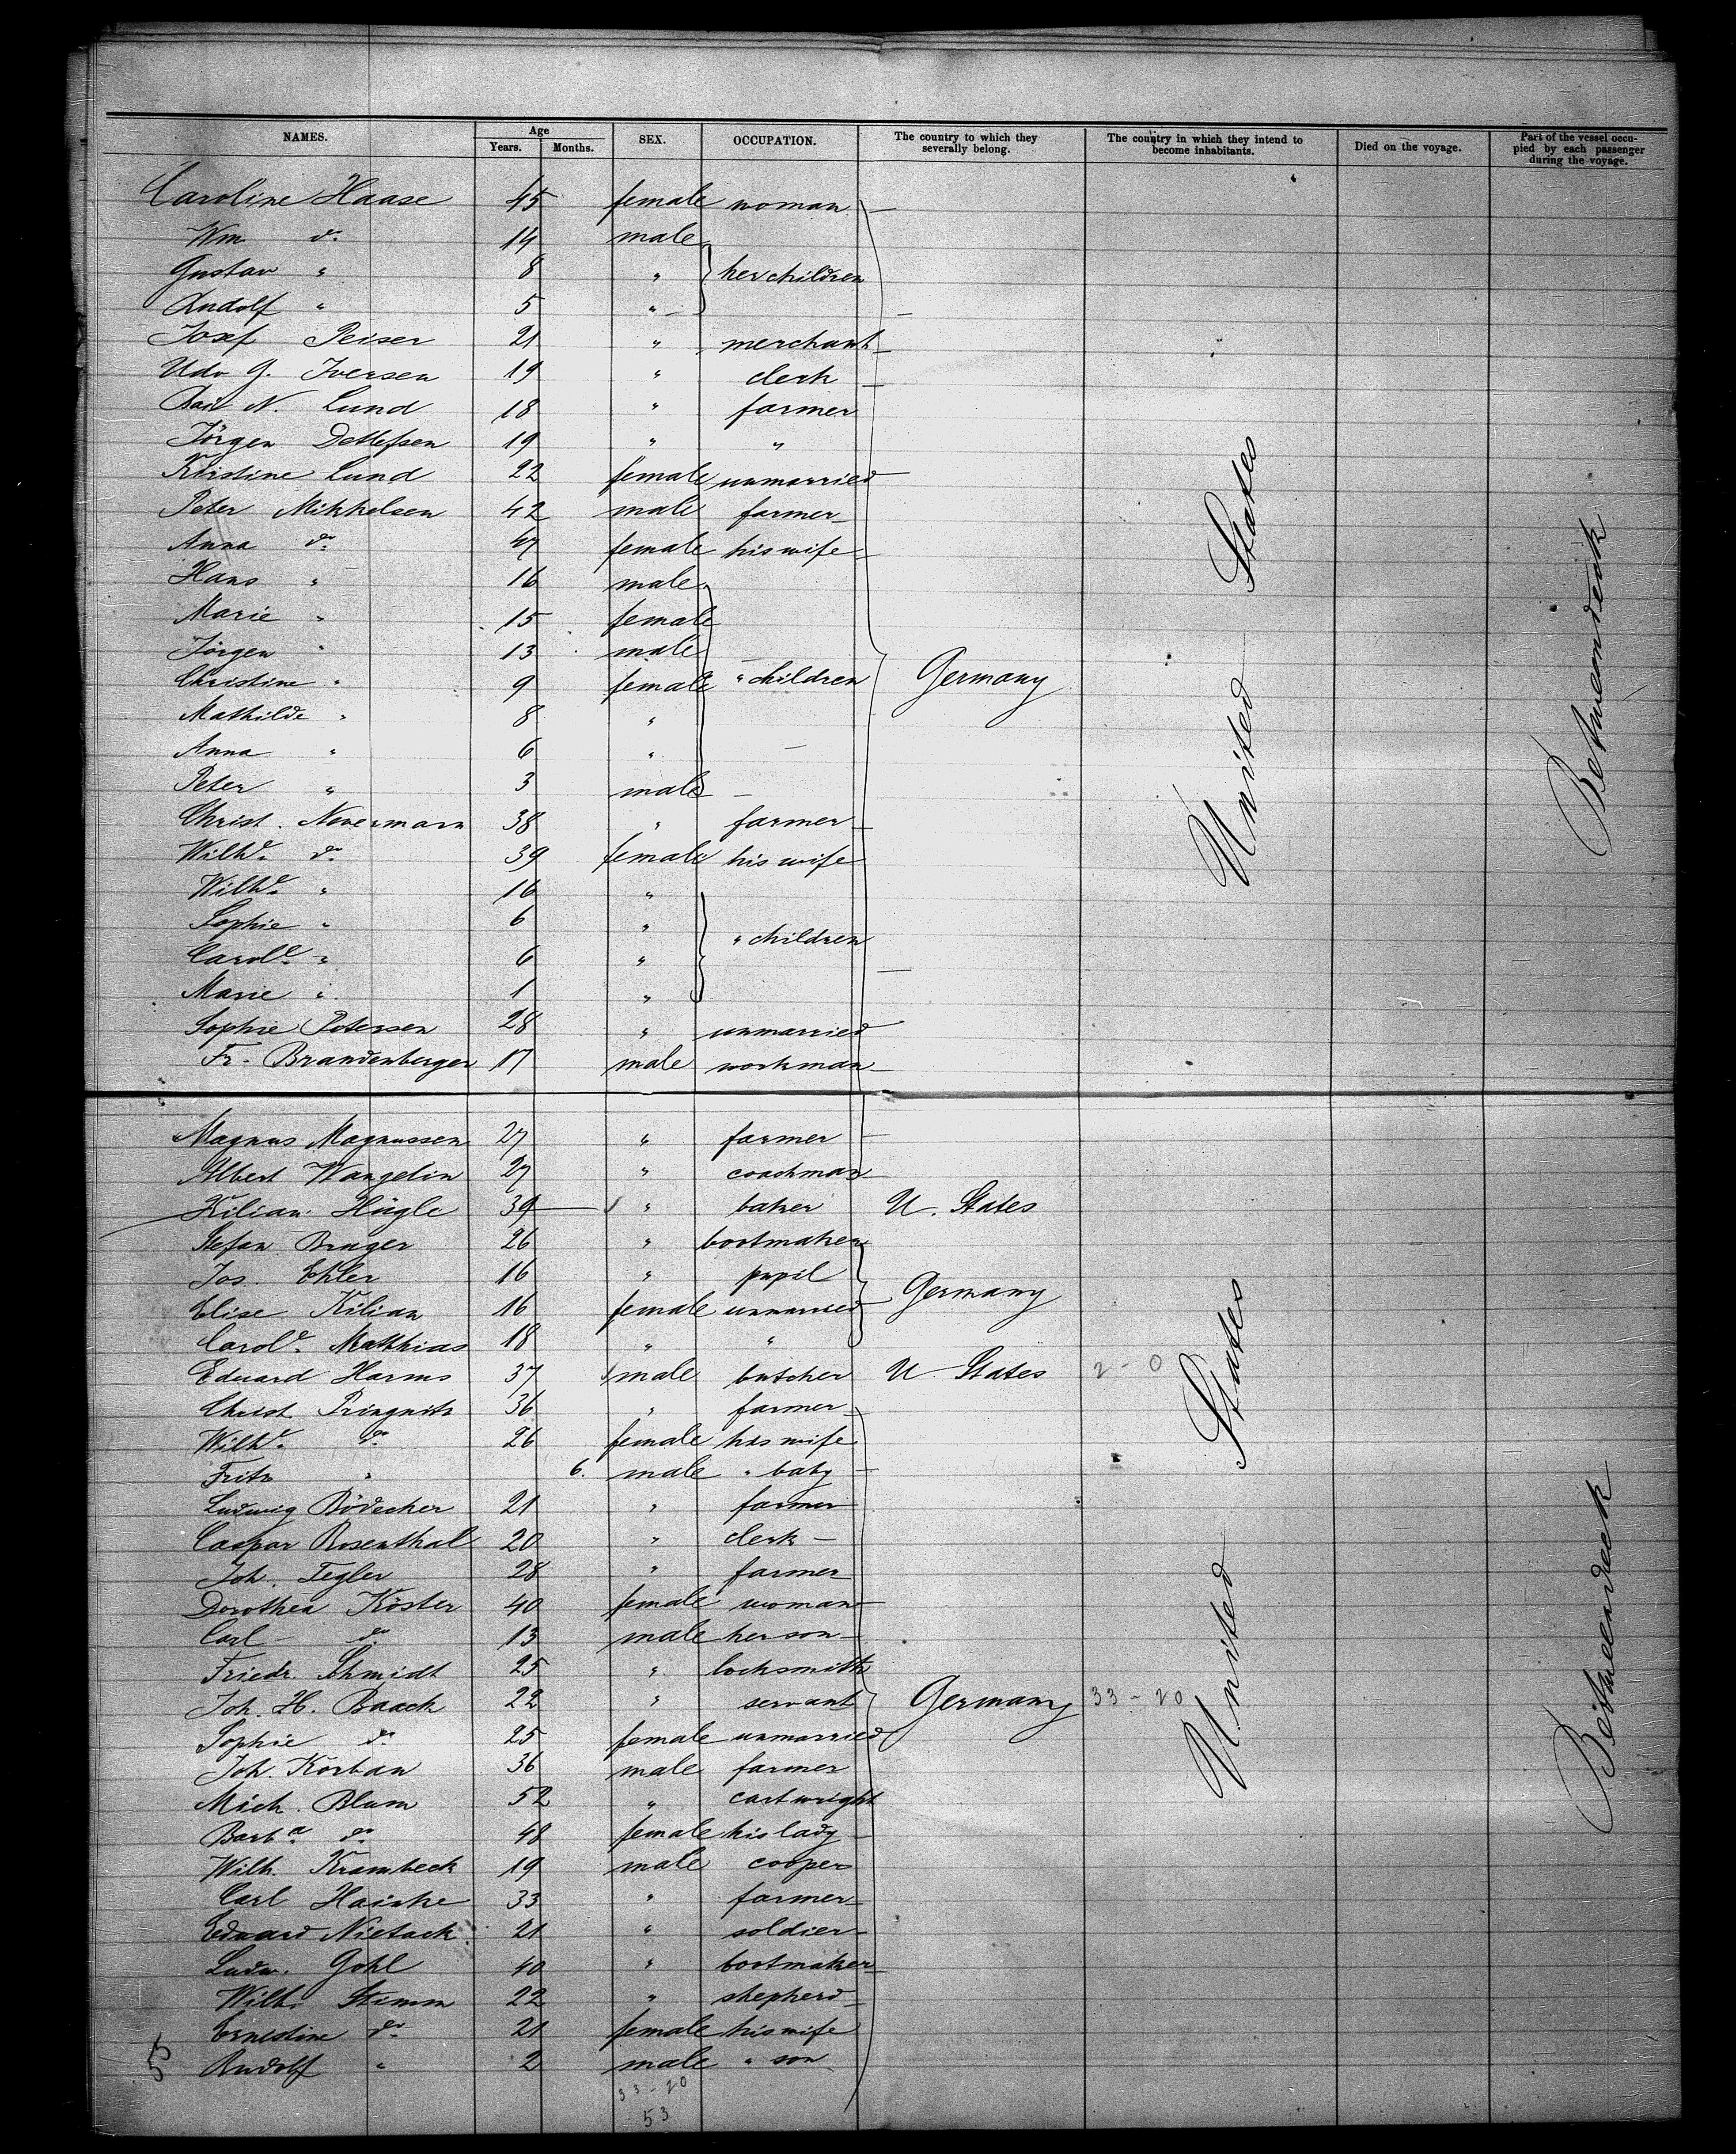 NAMES. Age Years. Months. SEX. OCCUPATION. The country to which they severally belong. The country in which they intend to become inhabitants. Died on the voyage. Part of the vessel occupied by each passenger during the voyage.
Caroline Haase 45 female woman
Wm do 14 male
Gustav " 8 " her children
Rudolf " 5 "
Josef Peiser 21 " merchant
Udo G. Iversen 19 " clerk
N. Lund 18 " farmer
Jörgen Detlefsen 19 " "
Kirstine Lund 22 female unmarried
Peter Mikkelsen 42 male farmer
Anna do 47 female his wife
Hans " 16 male
Marie " 15 female
Jörgen " 13 male
Christine " 9 female " children Germany
Mathilde " 8 "
Anna " 6 "
Peter " 3 male
Christ. Nevermann 38 " farmer
Wilhe do 39 female his wife
Wilhe " 16 "
Sophie " 6 " " children
Carole " 6 "
Marie " 1 "
Sophie Petersen 28 " unmarried
Fr. Brandenberger 17 male workman
United States
Betweendeck
Magnus Magnussen 27 " farmer
Albert Wangelin 27 " coachman
Kilian Hügle 39 " baker U. States
Stefan Bruger 26 " bootmaker
Jos. Ehler 16 " pupil
Elise Kilian 16 female unmarried Germany
Carole Matthias 18 " "
Eduard Harms 37 male butcher U. States 2-0
Christ. Pringnitz 36 " farmer
Wilhe do 26 female his wife
Fritz " 6. male " baby
Ludwig Bödecker 21 " farmer
Caspar Rosenthal 20 " clerk
Joh. Tegler 28 " farmer
Dorothea Köster 40 female woman
Carl do 13 male her son
Friedr. Schmidt 25 " locksmith
Joh. H. Baack 22 " servant Germany 33-20
Sophie do 25 female unmarried
Joh. Korban 36 male farmer
Mich. Blum 52 " cartwright
Barba do 48 female his lady
Wilh. Krambeck 19 male cooper
Carl Hainke 33 " farmer
Eduard Nietack 21 " soldier
Ludw. Gohl 40 " bootmaker
Wilh. Stimm 22 " shepherd
Ernestine do 21 female his wife
Rudolf " 2 male " son
United States
Betweendeck
55
33-20
53